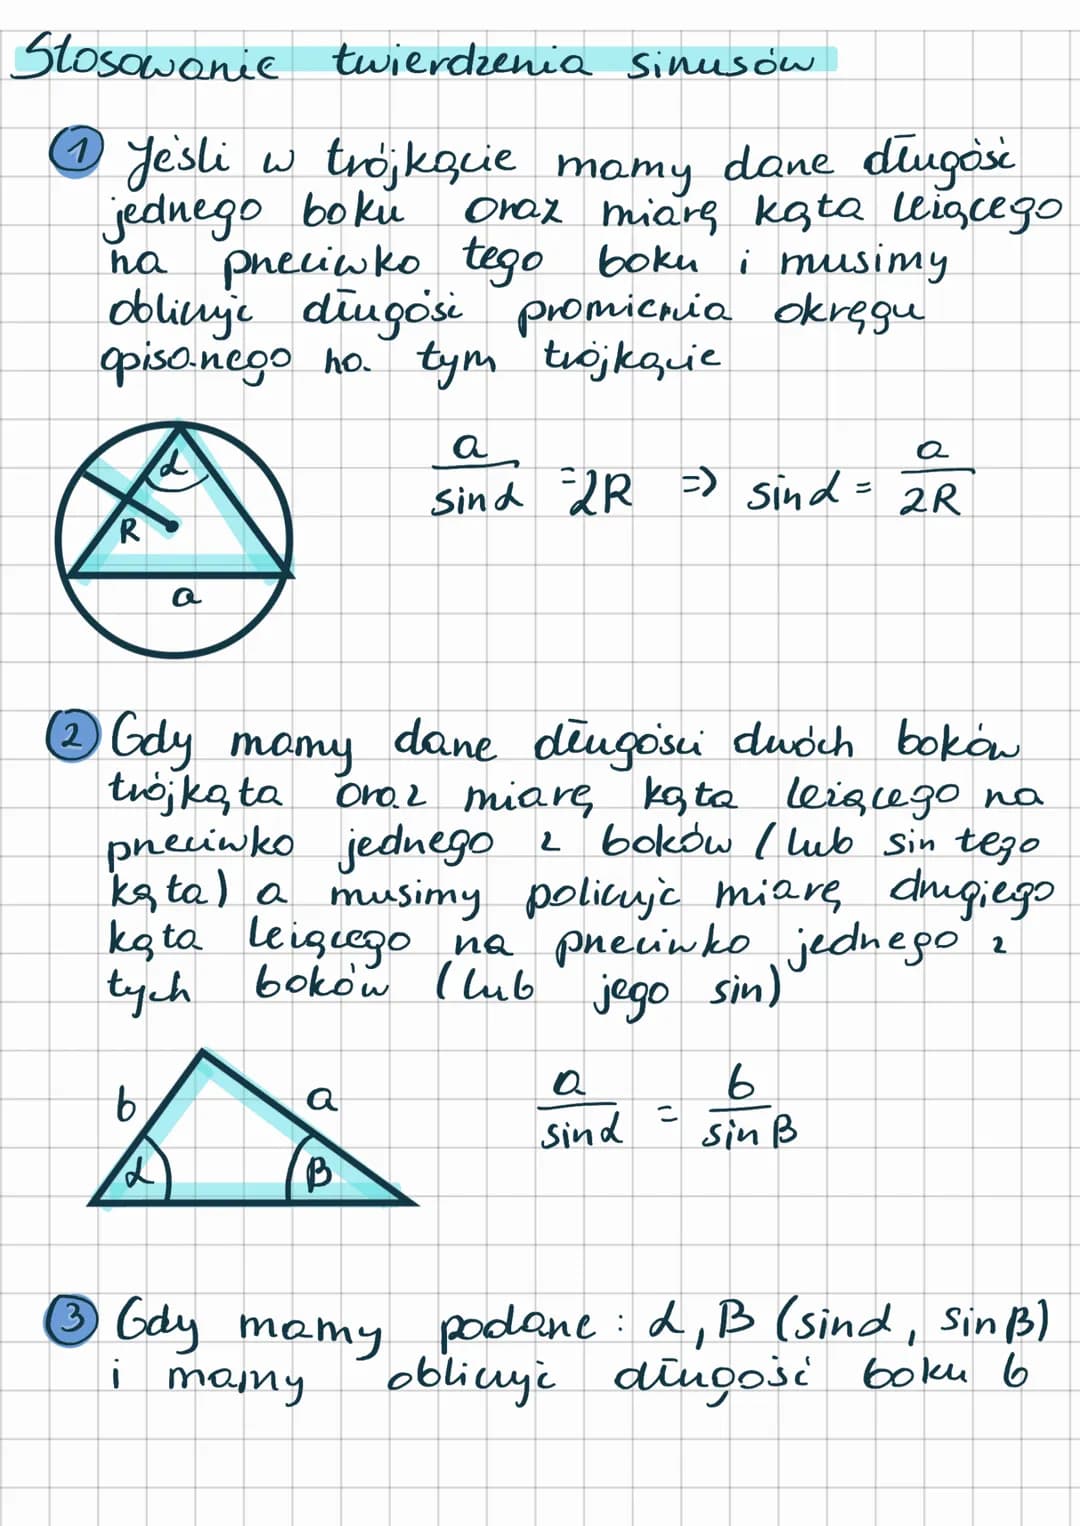 Stosowanie twierdzenia sinusów
1 Jeśli w trójkącie mamy dane długość
jednego boku oraz miarę kąta leżącego
na przeciwko tego boku i musimy
obliczyć długość promienia okręgu
opisanego na tym trójkącie
α
R
a
a/sinα = 2R => sinα = a/2R
2 Gdy mamy dane długości dwóch boków
trójkąta oraz miarę kąta leżącego na
przeciwko jednego z boków (lub sin tego
kąta) a musimy policzyć miarę drugiego
kąta leżącego na przeciwko jednego z
tych boków (lub jego sin)
b a
α β
a/sinα = b/sinβ
3 Gdy mamy podane: α, β (sinα, sinβ)
i mamy obliczyć długość boku b